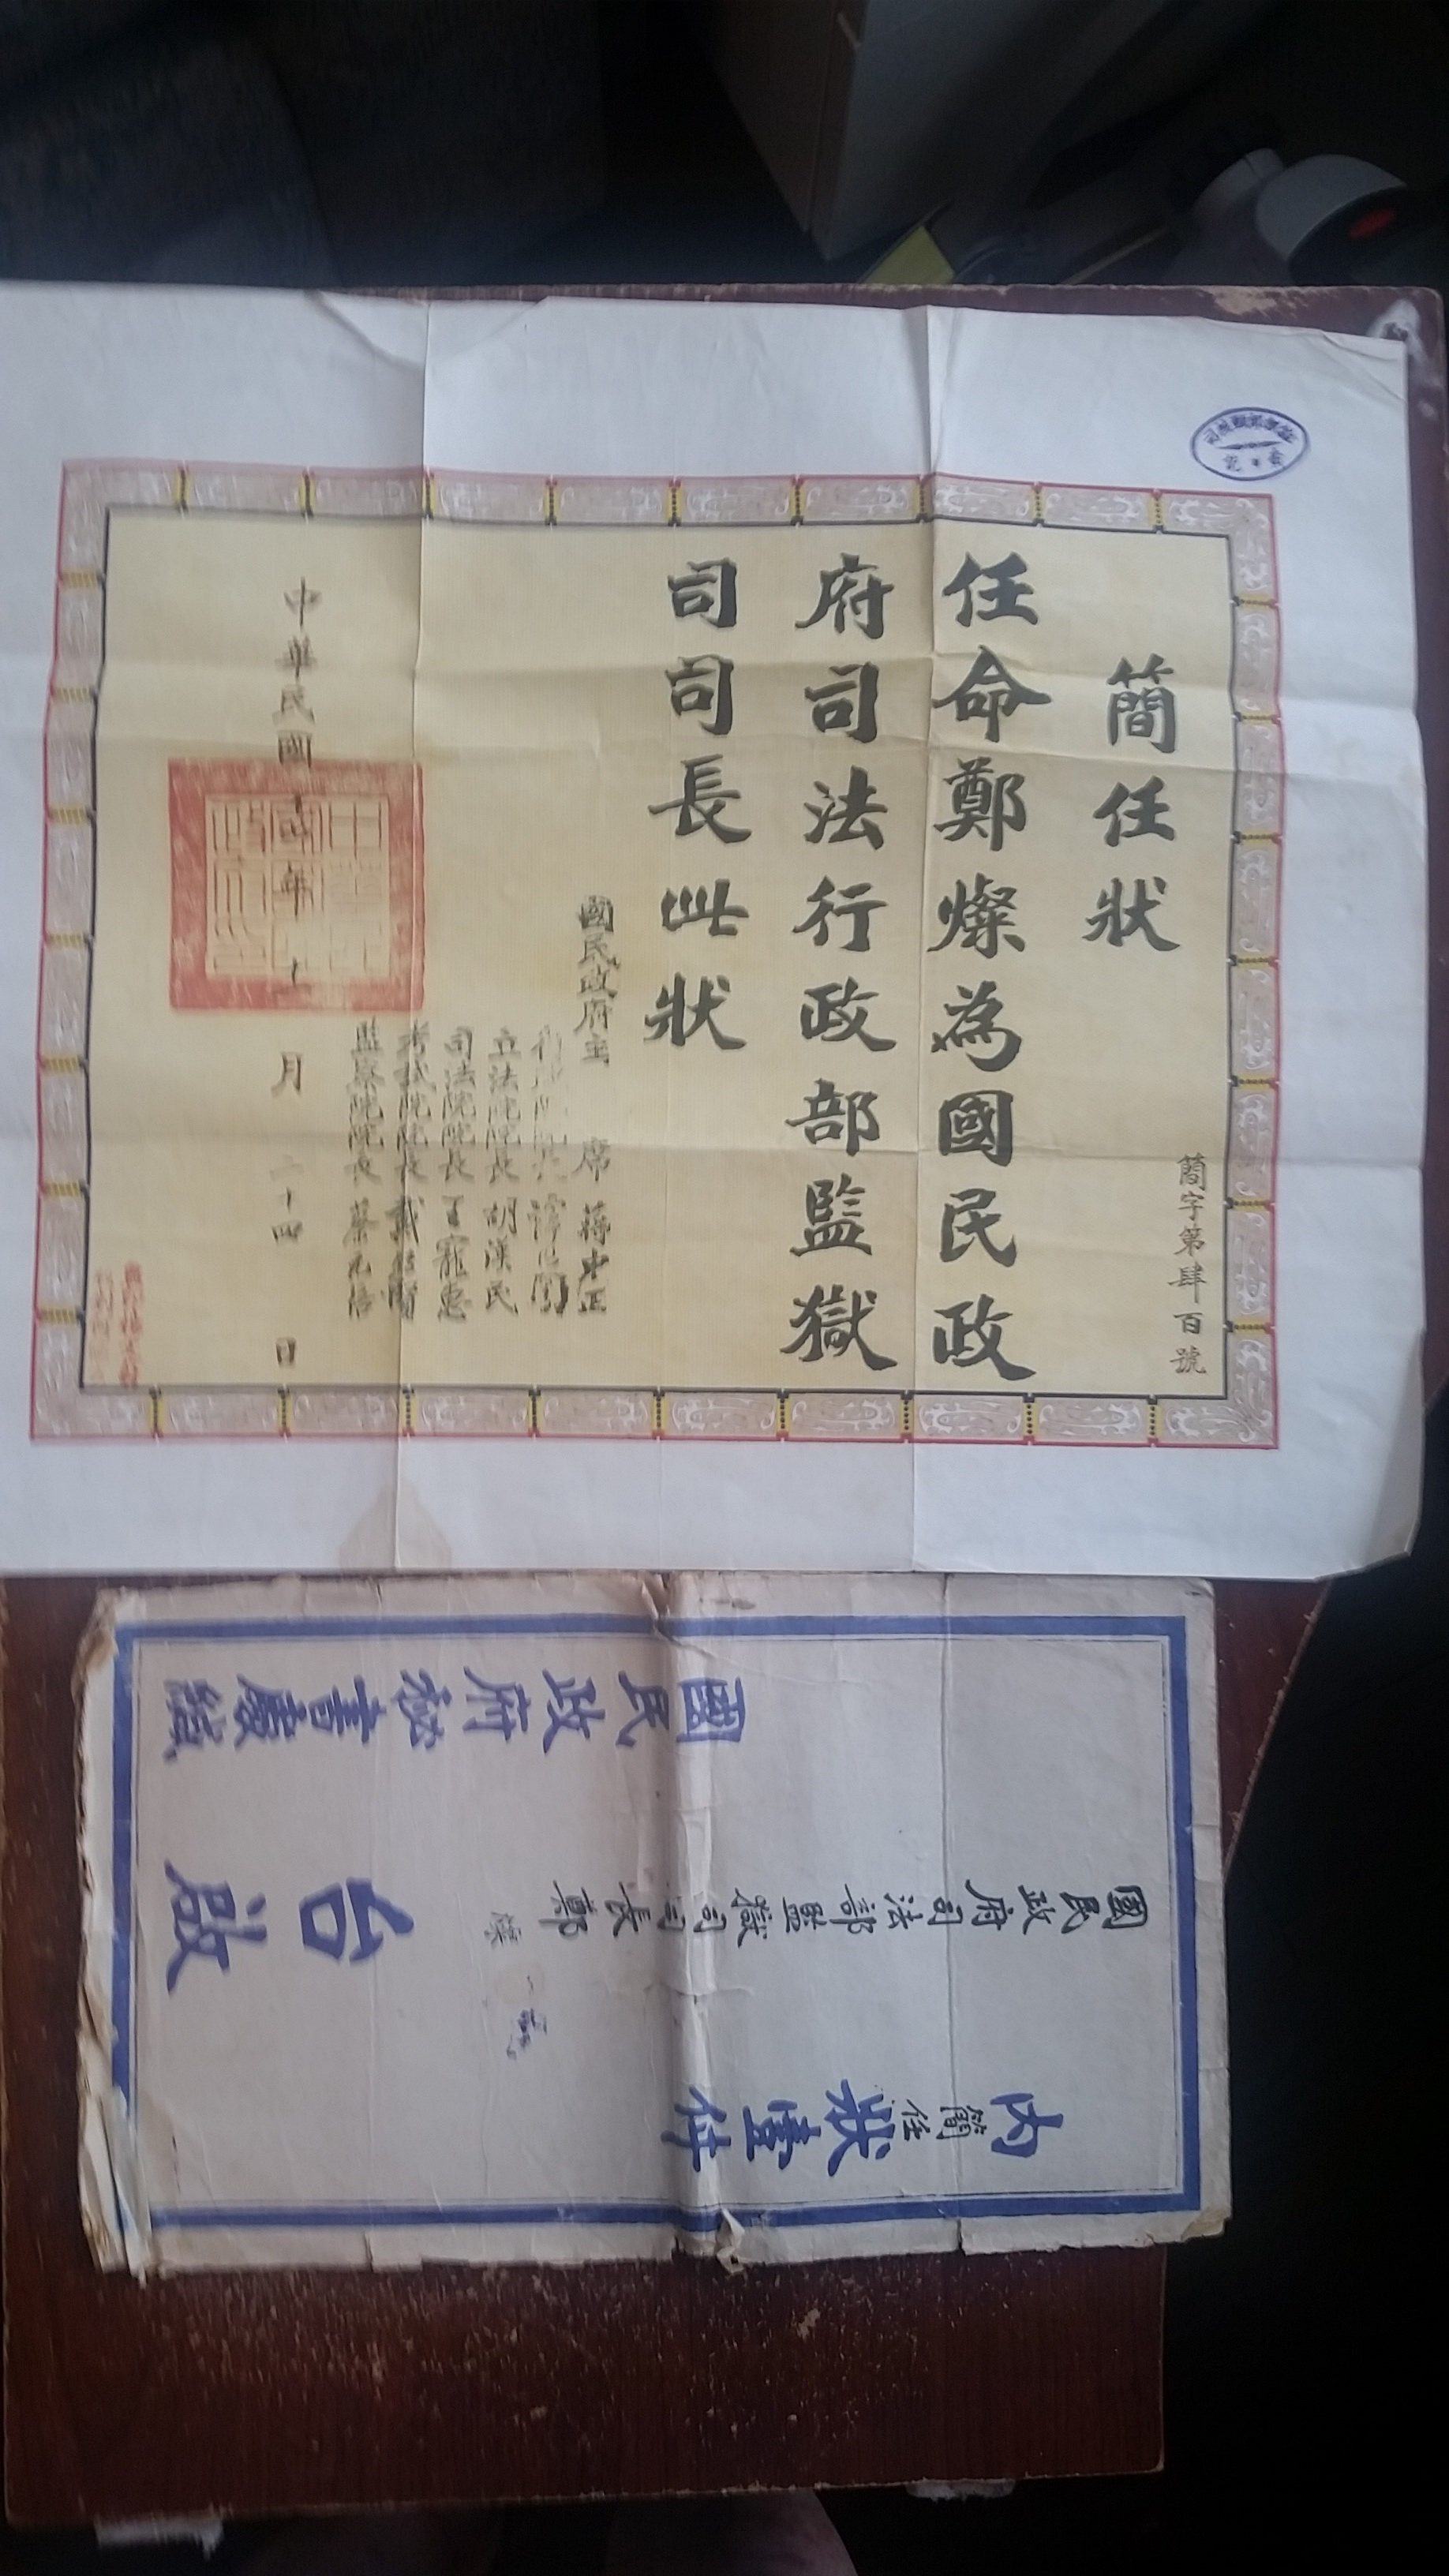 簡字第肆百號
簡任狀
任命鄭燦為國民政
府司法行政部監獄
司司長此狀
國民政府主席 蔣中正
立法院院長 胡漢民
司法院院長 王寵惠
考試院院長 戴
監察院院長 蔡元培
中華民國 年 月二十四日
國民政府司法部監獄司司長鄭燦
台啟
內簡任狀壹件
國民政府秘書處緘